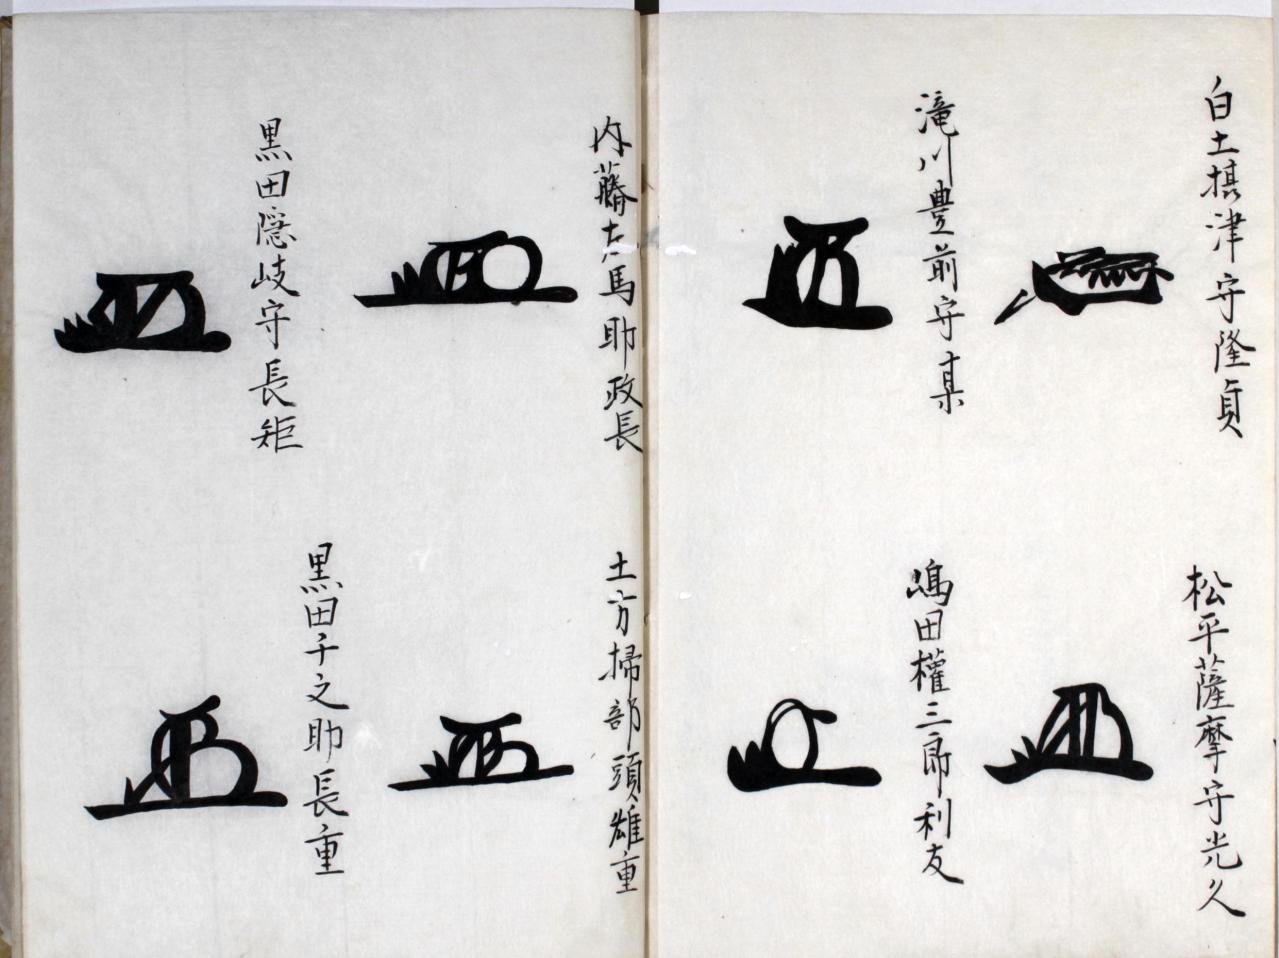 白土摂津守隆貞
松平薩摩守光久
滝川豊前守某
嶋田權三郎利友
内藤左馬助政長
土方掃部頭雄重
黒田隠岐守長矩
黒田千之助長重